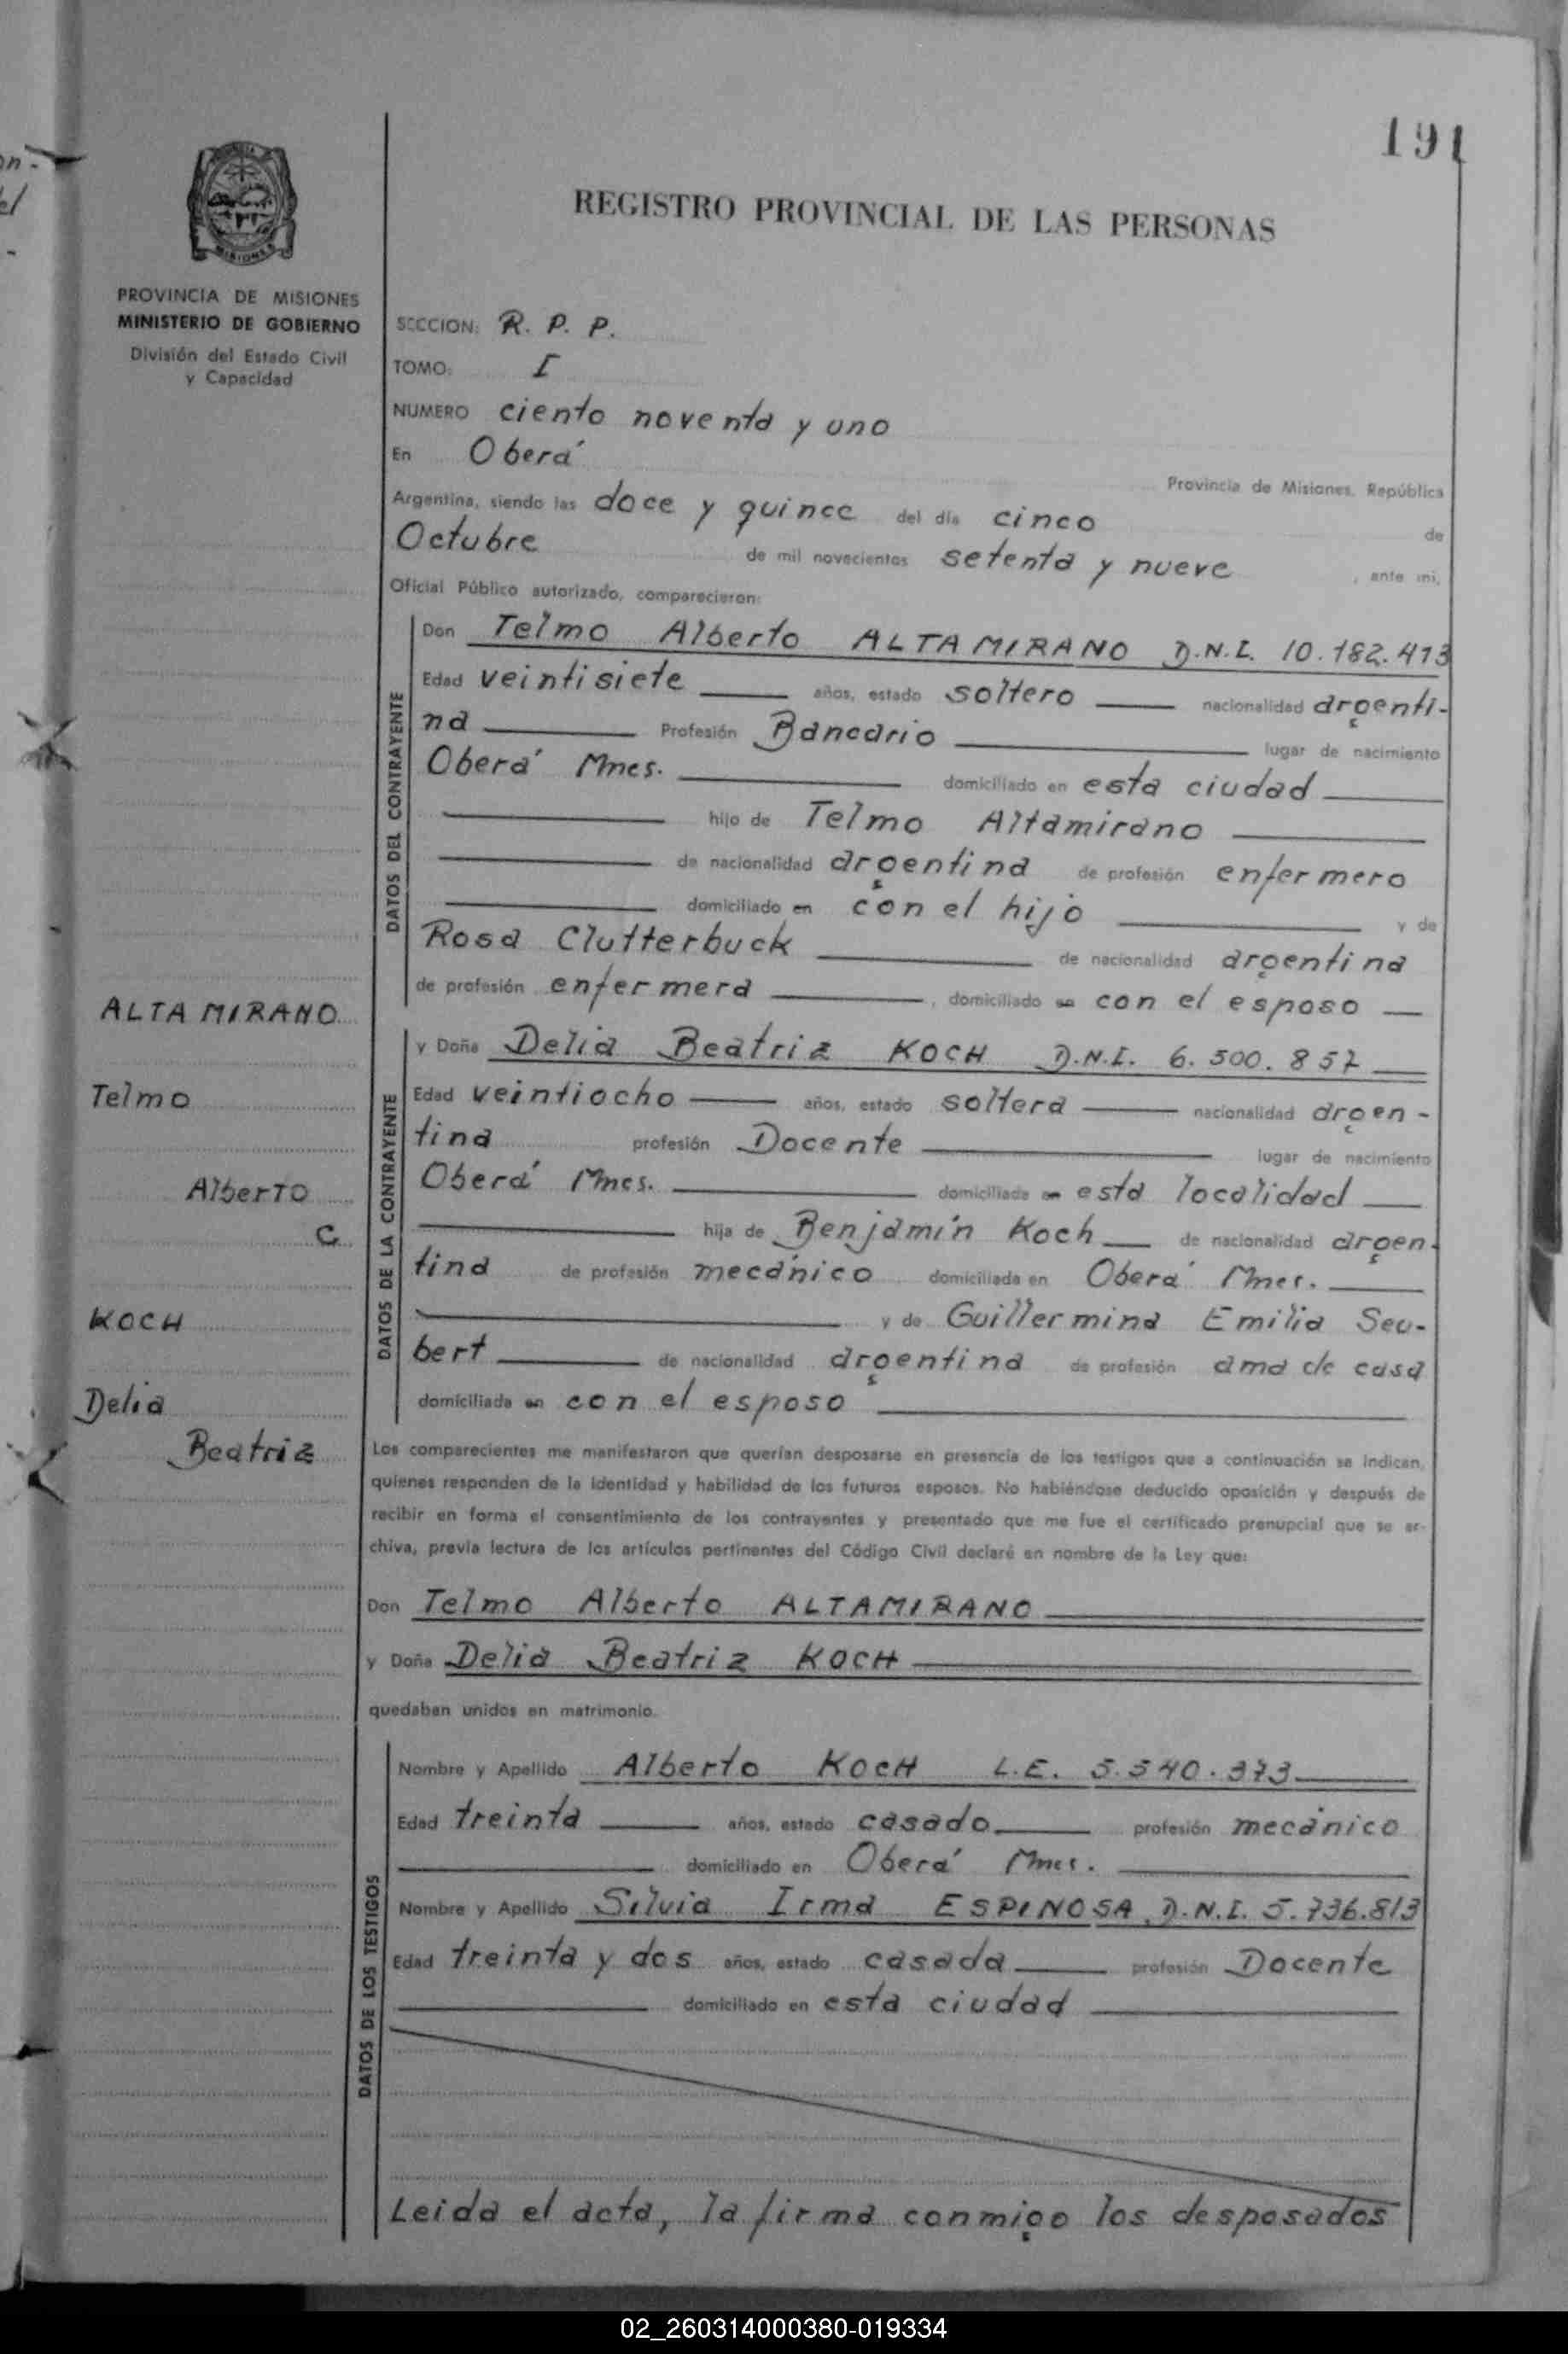 191
REGISTRO PROVINCIAL DE LAS PERSONAS
MISIONES
PROVINCIA DE MISIONES
MINISTERIO DE GOBIERNO
División del Estado Civil
y Capacidad
SECCION: R. P. P.
TOMO: I
NUMERO ciento noventa y uno
En Oberá
Provincia de Misiones, República
Argentina, siendo las doce y quince del día cinco de
Octubre de mil novecientos setenta y nueve, ante mi,
Oficial Público autorizado, comparecieron:
DATOS DEL CONTRAYENTE
Don Telmo Alberto ALTAMIRANO D.N.I. 10.182.413
Edad veintisiete años, estado soltero nacionalidad argenti-
na Profesión Bancario lugar de nacimiento
Oberá Mnes. domiciliado en esta ciudad
hijo de Telmo Altamirano
de nacionalidad argentina de profesión enfermero
domiciliado en con el hijo y de
Rosa Clutterbuck de nacionalidad argentina
de profesión enfermera, domiciliado en con el esposo
DATOS DE LA CONTRAYENTE
y Doña Delia Beatriz KOCH D.N.I. 6.500.857
Edad veintiocho años, estado soltera nacionalidad argen-
tina profesión Docente lugar de nacimiento
Oberá Mnes. domiciliada en esta localidad
hija de Benjamín Koch de nacionalidad argen-
tina de profesión mecánico domiciliada en Oberá Mnes.
y de Guillermina Emilia Seu-
bert de nacionalidad argentina de profesión ama de casa
domiciliada en con el esposo
ALTAMIRANO
Telmo
Alberto
C
KOCH
Delia
Beatriz
Los comparecientes me manifestaron que querían desposarse en presencia de los testigos que a continuación se indican,
quienes responden de la identidad y habilidad de los futuros esposos. No habiéndose deducido oposición y después de
recibir en forma el consentimiento de los contrayentes y presentado que me fue el certificado prenupcial que se ar-
chiva, previa lectura de los artículos pertinentes del Código Civil declaré en nombre de la Ley que:
Don Telmo Alberto ALTAMIRANO
y Doña Delia Beatriz KOCH
quedaban unidos en matrimonio.
DATOS DE LOS TESTIGOS
Nombre y Apellido Alberto KOCH L.E. 5.540.373
Edad treinta años, estado casado profesión mecánico
domiciliado en Oberá Mnes.
Nombre y Apellido Silvia Irma ESPINOSA D.N.I. 5.736.813
Edad treinta y dos años, estado casada profesión Docente
domiciliado en esta ciudad
Leida el acta, la firma conmigo los desposados
02_260314000380-019334